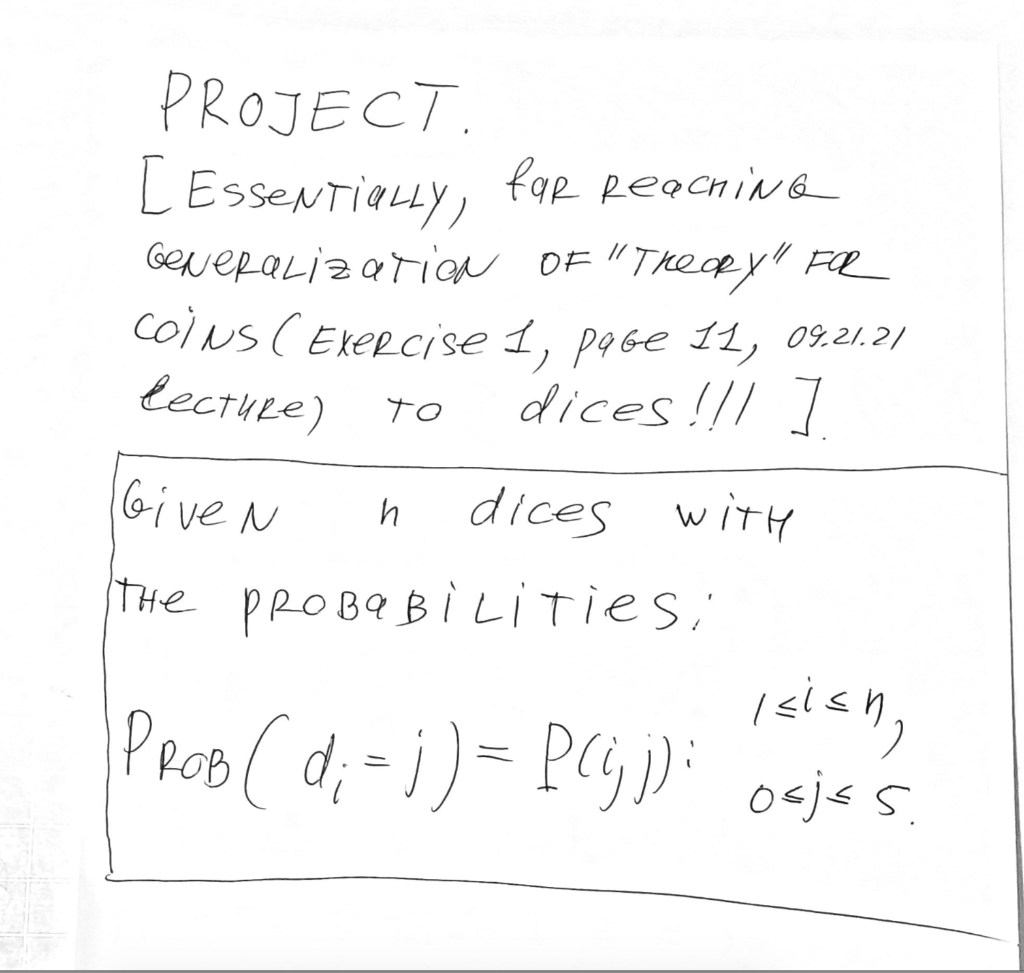 PROJECT.
[ESSENTIALLY, far REACHING
GENERALIZATION OF "THEORY" FOR
COINS (EXERCISE 1, PAGE 11, 09.21.21
lecture) TO dices!!! ].
Given n dices with
THE PROBABILITIES:
PROB( d_i = j) = P(i,j): 1≤i≤n,
0≤j≤5.